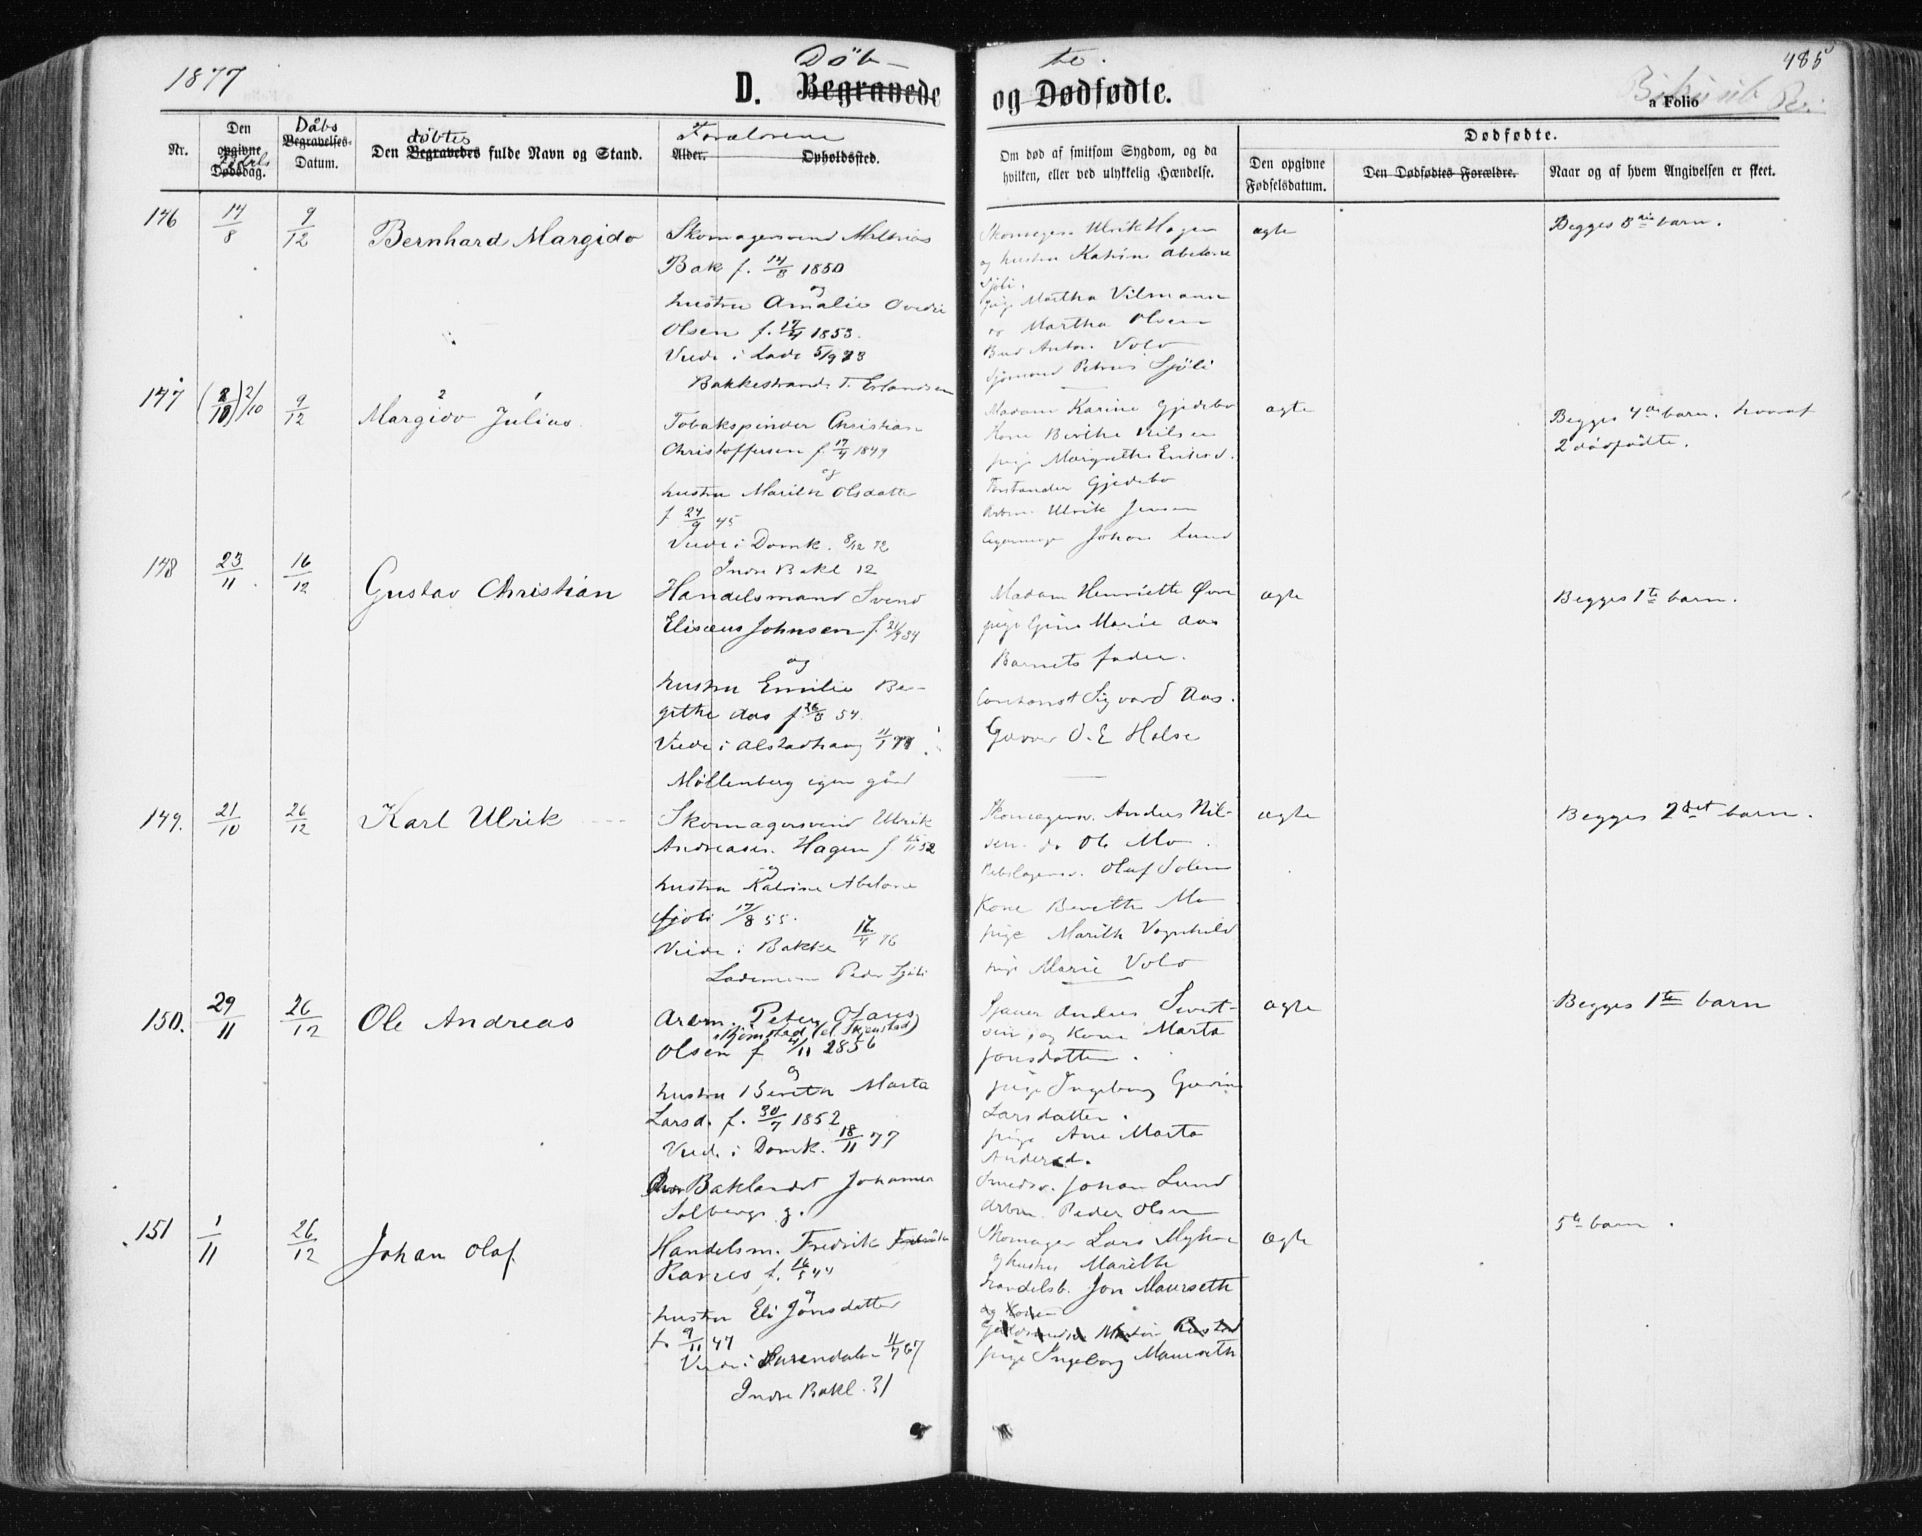 1877
Döb-
te.
485
D. Begravede
og Dødfødte.
a Folio
Nr.
Den opgivne Dødsdag.
Födsels
Dåbs
Begravelses-
Datum.
döbtes
Den Begravedes fulde Navn og Stand.
Forældrene
Alder.
Opholdssted.
Om død af smitsom Sygdom, og da
hvilken, eller ved ulykkelig Hændelse.
Dødfødte.
Den opgivne
Fødselsdatum.
Den Dødfødtes Forældre.
Naar og af hvem Angivelsen er skeet.
146
14/8
9/12
Bernhard Margido
Skomagersvend Mathias
Bak f. 14/8 1850
og
hustru Amalie
Olsen f. 17/4 1853.
Viede i Lade 5/9 73
Bakkestrand T. Erlandsen
Skomagers. Ulrik Hagen
og hustru Katrine Abelone
Sjöli.
pige Martha Vilmann
og Martha Olsen
Anton Volo
Sjömand Petrus Sjöli
ægte
Begges barn.
147
(2/10) 2/10
9/12
Margido Julius
2 1
Tobakspinder Christian
Christoffersen f. 17/4 1849
og
hustru Marith Olsdatter
f 24/9 45
Viede i Domk. 8/12 72
Indre Bakl 12
Madam Karine Gjedebo
Kone Berthe Nilsen
pige Margrethe
Forstander Gjedebo
Arbm. Ulrik Jensen
Johan Lund
ægte
Begges 4de barn. hvoraf
2 dödfödte.
148
23/11
16/12
Gustav Christian
Handelsmand Svend
Elisæus Johnsen f. 21/9 34
og
hustru Emilie Be-
githe Aas f. 26/8 54.
Viede i Alstadhaug 11/1 77
Möllenberg egen gård
Madam Henriette
pige Gine Marie Aas
Barnets fader.
Sigvard Aas.
Garver O. E Holse
ægte
Begges 1te barn.
149.
21/10
26/12
Karl Ulrik
Skomagersvend Ulrik
Andreasen Hagen f 52
og
hustru Katrine Abelone
Sjöli 17/8 55.
Viede i Bakke 17/4 76
Peder Sjöli
Skomagersv. Anders Nil-
sen. do Ole Mo.
Olaf Solem
Kone Berethe Mo
pige Marith Vognhild
pige Marie Volo
ægte
Begges 2det barn.
150.
29/11
26/12
Ole Andreas
Arbm. Peter Olaus
Skjemstad (el. Skjenstad)
Olsen f 4/11 2856
og
hustru Bereta Marta
Larsd. f. 30/7 1852
Viede i Domk. 18/11 77
Baklandet Johannes
Solbergs g.
Sjauer Anders Sivert-
sen, og kone Marta
Jonsdatter.
pige Ingeborg
Larsdatter.
pige Ane Marta
Andersd.
Smedsv. Johan Lund
Arbm. Peder Olsen
ægte
Begges 1te barn
151
1/11
26/12
Johan Olaf
Handelsm. Fredrik
Ranes f. 16/5 44
og
hustru Eli Jonsdatter
f. 9/11 47
Viede i Surendalen 11/7 67
Indre Bakl. 31
Skomager Lars
og hustru Marith
handelsb. Jon Maurseth
og kone
pige Ingeborg Maurseth
ægte
5te barn.